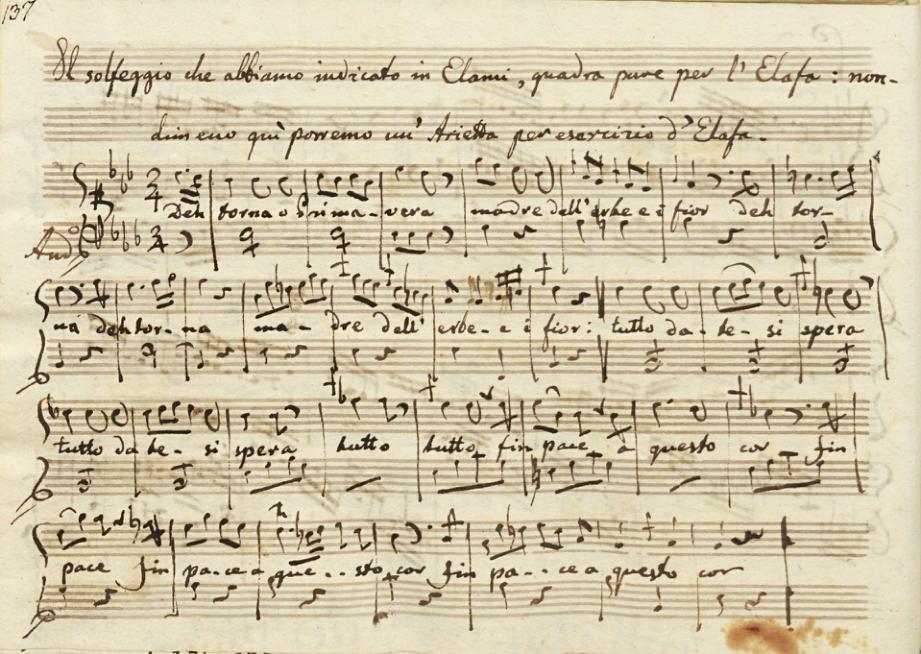 137
Il solfeggio che abbiamo indicato in Elami, quadra pure per l' Elafa: non-
dimeno quì porremo un' Arietta per esercizio d' Elafa.
Deh torna o Prima-vera madre dell' erbe e i fior deh tor-
And
na deh tor-na ma-dre dell' erbe-e i fior: tutto da-te-si spera
tutto da te-si spera tutto tutto fin pace a questo cor fin
pace fin pa-ce a que--sto cor fin pa--ce a questo cor